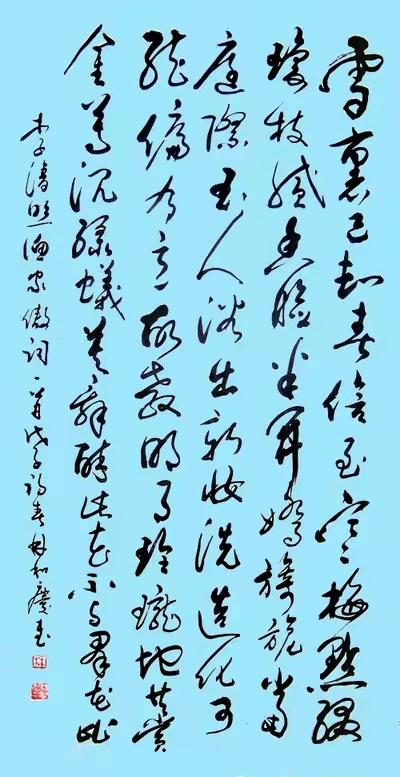 雪裏已知春信至寒梅點綴
瓊枝膩香臉半開嬌旖旎當
庭際玉人浴出新妝洗造化可
能偏有意故教明月玲瓏地共賞
金尊沉綠蟻莫辭醉此花不與群花比
李清照漁家傲詞一首戊子初春和慶書